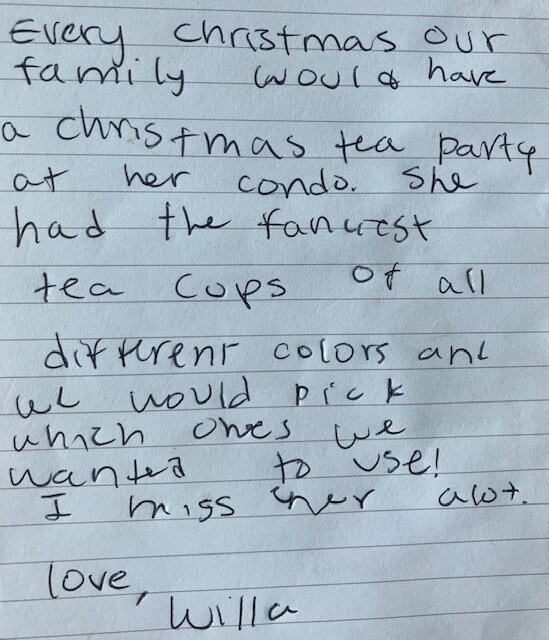 Every christmas our
family would have
a christmas tea party
at her condo. She
had the fanciest
tea cups of all
different colors and
we would pick
which ones we
wanted to use!
I miss her alot.
love,
Willa